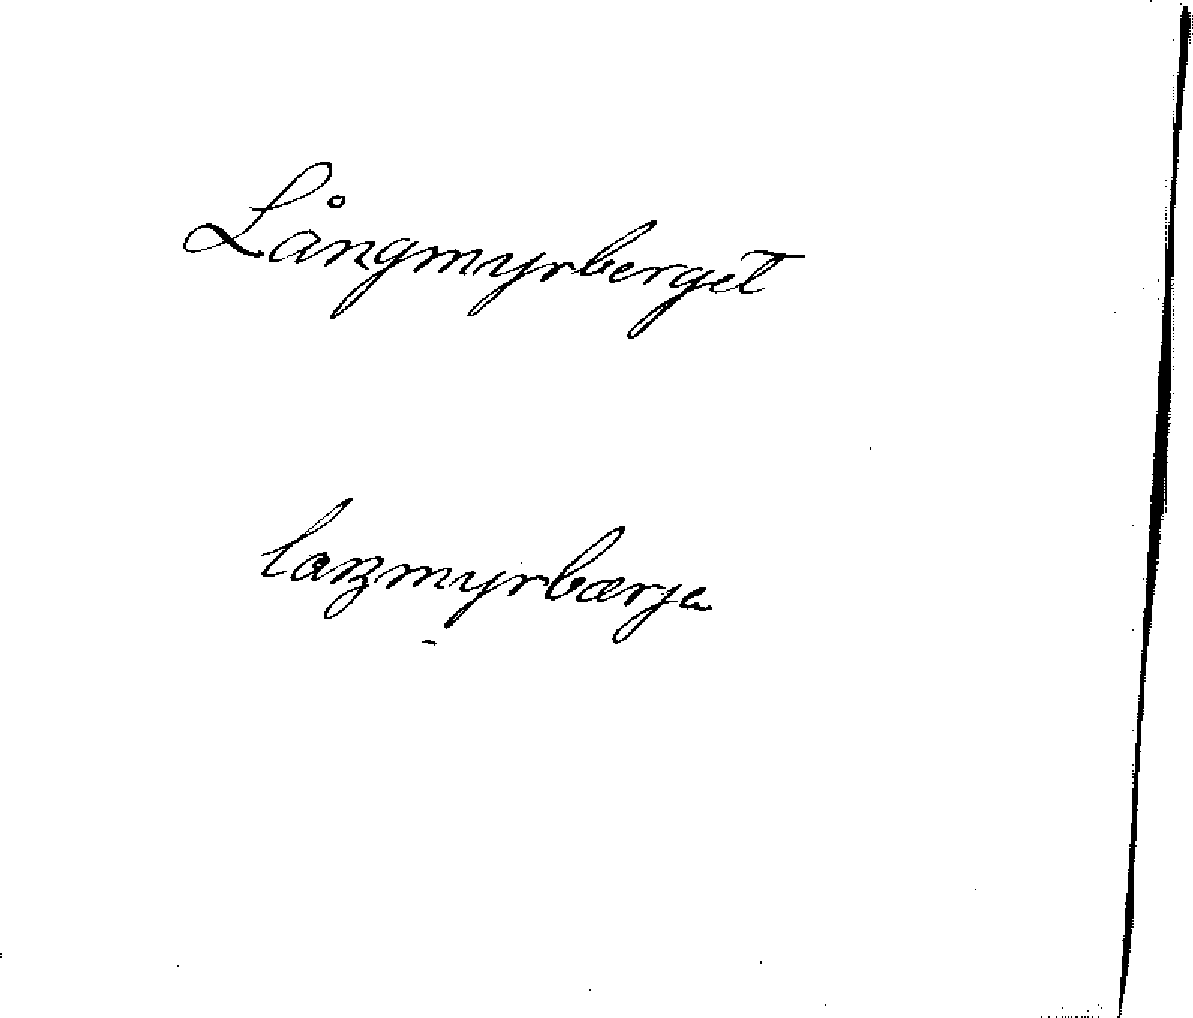 Långmyrberget
laŋmyrbærja